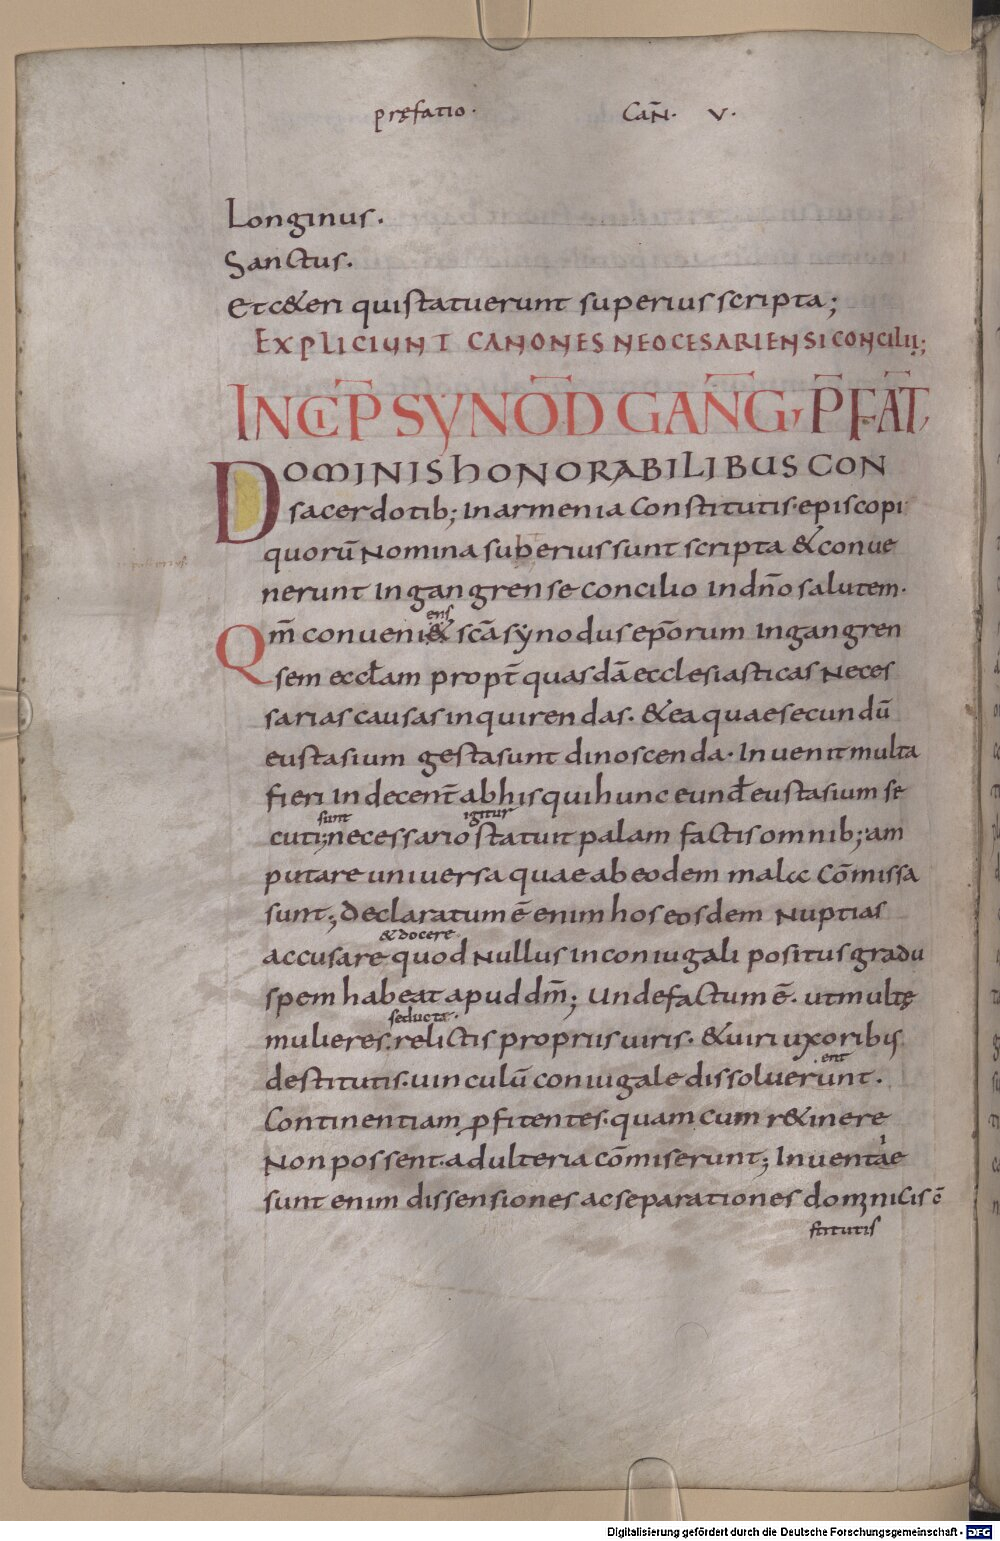 pręfatio · CAÑ · V ·
Longinus ·
Sanctus ·
Et c&eri qui statuerunt superius scripta ;
EXPLICIUNT CANONES NEOCESARIENSI CONCILII ;
INCIP̅ SYNOD̅ GANG̅, P̅FAT̅,
DOMINIS HONORABILIBUS CON
sacerdotib; In armenia Constitutis · episcopi
quorū Nomina superius sunt scripta & conue
nerunt In gangrense concilio In dn̄o salutem ·
ens
Qm̄ conueni& sc̄a synodus ep̄orum In gangren
sem eccl̄am propt̄ quasdā ecclesiasticas Neces
sarias causas inquirendas · & ea quae secundū
eustasium gesta sunt dinoscenda · Inuenit multa
fieri Indecent̄ ab his qui hunc eund̄ eustasium se
sunt igitur
cuti; necessario statuit palam factis omnib; am
putare uniuersa quae ab eodem malae Cōmissa
sunt; Declaratum ē enim hos eosdem Nuptias
& docere
accusare quod Nullus in coniugali positus gradu
spem habeat apud dm̄; Unde factum ē · ut multę
seducta ·
mulieres · relictis propriis uiris · & uiri uxoribus
ent
destitutis · uinculū coniugale dissoluerunt ·
Continentiam p̄fitentes · quam cum r&inere
Non possent · adulteria cōmiserunt; Inuentae
sunt enim dissensiones ac separationes domnicis c̄
stitutis
Digitalisierung gefördert durch die Deutsche Forschungsgemeinschaft - DFG